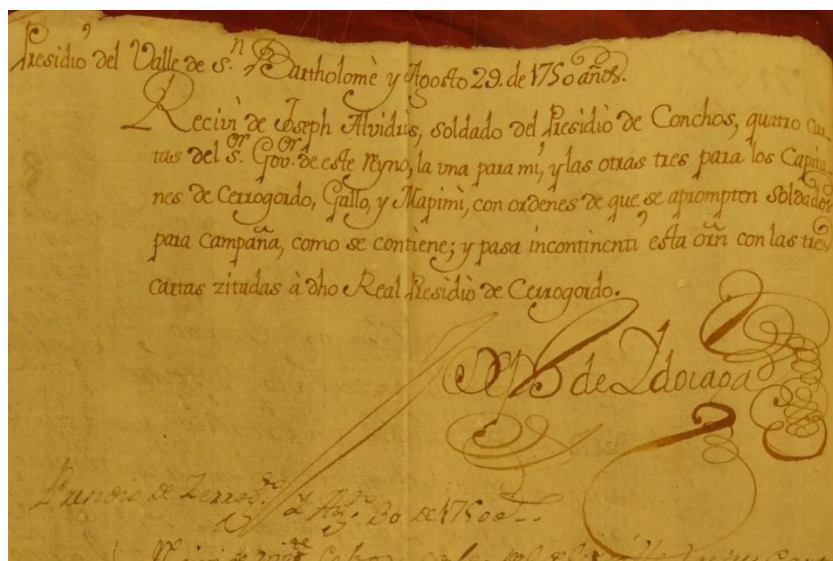 Presidio del Valle de S.n Bartholomè y Agosto 29. de 1750 años.
Recivì de Joseph Alvidris, soldado del Presidio de Conchos, quatro car-
tas del s.or Gov.or de este reyno, la una para mi, y las otras tres para los Capita-
nes de Cerrogordo, Gallo, y Mapimì, con ordenes de que se aprompten Soldados
para campaña, como se contiene; y pasa incontinenti esta orn con las tres
cartas zitadas à dho Real Presidio de Cerrogordo.
de Ydoiaga
Presidio de Zerrogdo. y Agto 30 de 1750 a